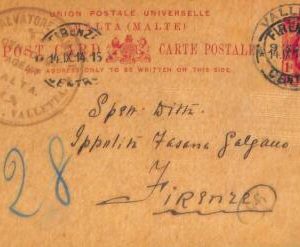 UNION POSTALE UNIVERSELLE
MALTA (MALTE)
POST CARD CARTE POSTALE
ADDRESS ONLY TO BE WRITTEN ON THIS SIDE.
SALVATORE
VALLETTA
FIRENZE
14.IX.14.15
CENTRO
VALLE
FIRENZE
14.IX
CENT
Spett. Ditta
Ippolito Fasano Galgano
Firenze
28